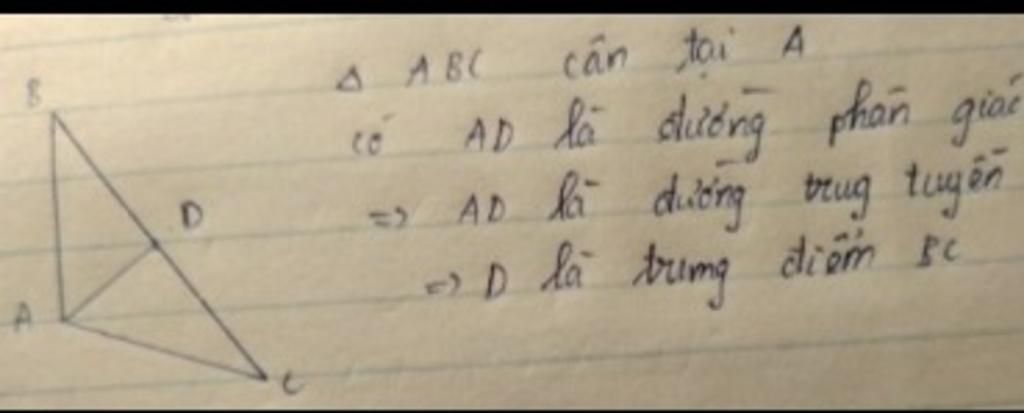 Δ ABC cân tại A
có AD là đường phân giác
=> AD là đường trug tuyến
=> D là trung điểm BC
B
D
A
C